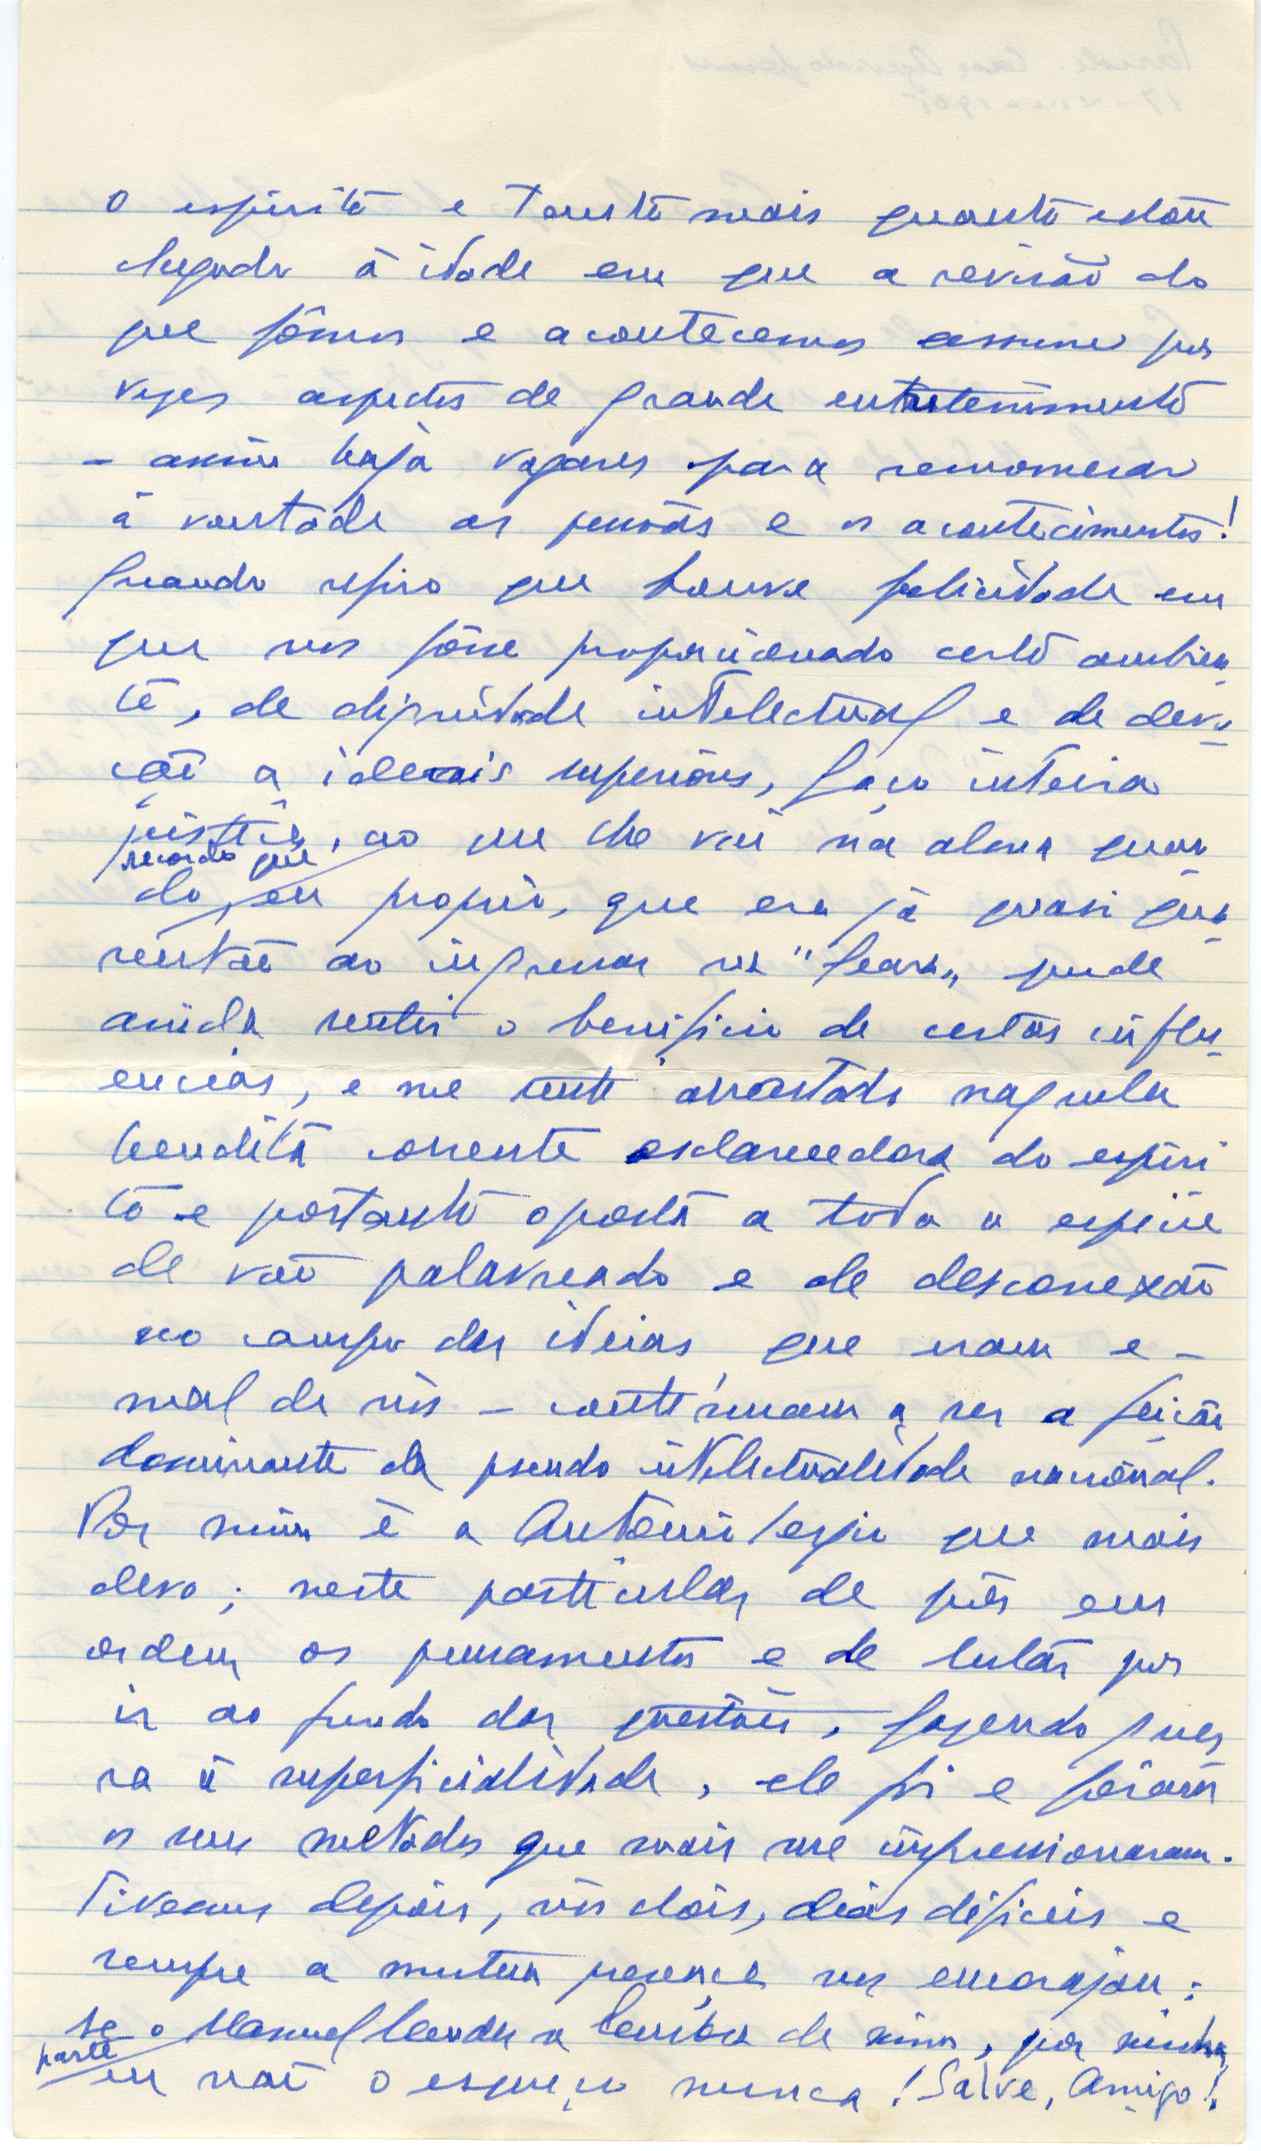 o espirito e tanto mais quanto estou
chegado à idade em que a revisão do
que fômos e acontecemos assume por
vezes aspectos de grande entretenimento
– assim haja vagares para rememorar
à vontade as pessoas e os acontecimentos!
Quando refiro que houve felicidade em
que nos fôsse proporcionado certo ambien-
te, de dignidade intelectual e de devo-
ção a ideais superiores, faço inteira
justiça, ao que lhe vai na alma quan-
do, recordo que eu proprio, que era já quasi qua-
rentão ao ingressar na "Seara", pude
ainda sentir o beneficio de certas influ-
encias, e me senti arrastado naquela
bendita corrente esclarecedora do espiri
to e portanto oposta a toda a espécie
de vão palavreado e de desconexão
no campo das ideias que eram e –
mal de nós – continuam a ser a feição
dominante da pseudo intelectualidade nacional.
Por mim é a Antonio Sergio que mais
devo; neste particular de pôr em
ordem os pensamentos e de lutar por
ir ao fundo das questões, fazendo guer
ra à superficialidade, ele foi e fôram
os seus metodos que mais me impressionaram.
Tivemos depois, nós dois, dias dificeis e
sempre a mutua presença nos encorajou:
se o Manuel Mendes se lembra de mim, por minha
parte eu não o esqueço nunca! Salve, Amigo!